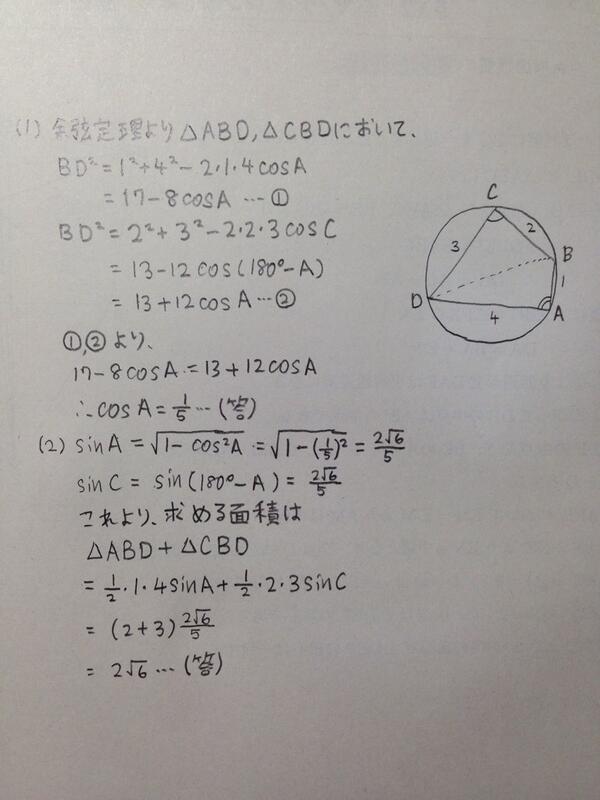 (1) 余弦定理より △ABD, △CBDにおいて、
BD² = 1² + 4² - 2・1・4 cosA
= 17 - 8cosA … ①
BD² = 2² + 3² - 2・2・3 cosC
= 13 - 12 cos(180° - A)
= 13 + 12 cosA … ②
①,②より、
17 - 8cosA = 13 + 12cosA
∴ cosA = 1/5 … (答)
(2) sinA = √(1 - cos²A) = √(1 - (1/5)²) = 2√6/5
sinC = sin(180° - A) = 2√6/5
これより、求める面積は
△ABD + △CBD
= 1/2・1・4 sinA + 1/2・2・3 sinC
= (2+3) 2√6/5
= 2√6 … (答)
C
3
2
B
1
D
4
A